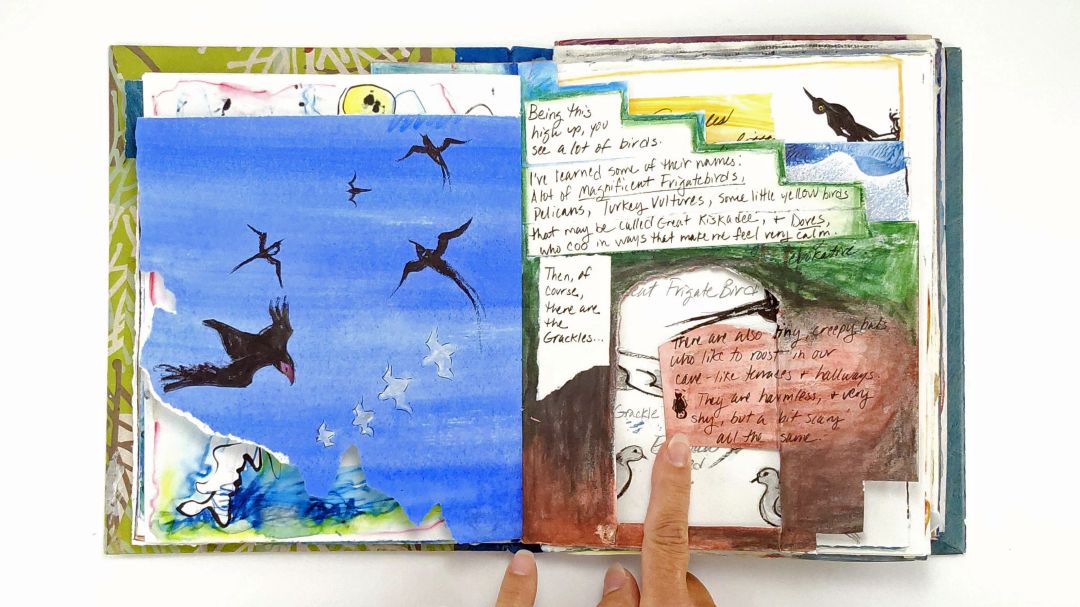 Being this
high up, you
see a lot of birds.
I've learned some of their names:
A lot of Magnificent Frigatebirds,
Pelicans, Turkey Vultures, some little yellow birds
that may be called Great Kiskadee, & Doves,
who coo in ways that make me feel very calm.
evokative
Then, of
course,
there are
the
Grackles...
Frigate Bird
There are also tiny, creepy bats
who like to roost in our
cave-like terraces & hallways.
They are harmless, & very
shy, but a bit scary
all the same.
Grackle